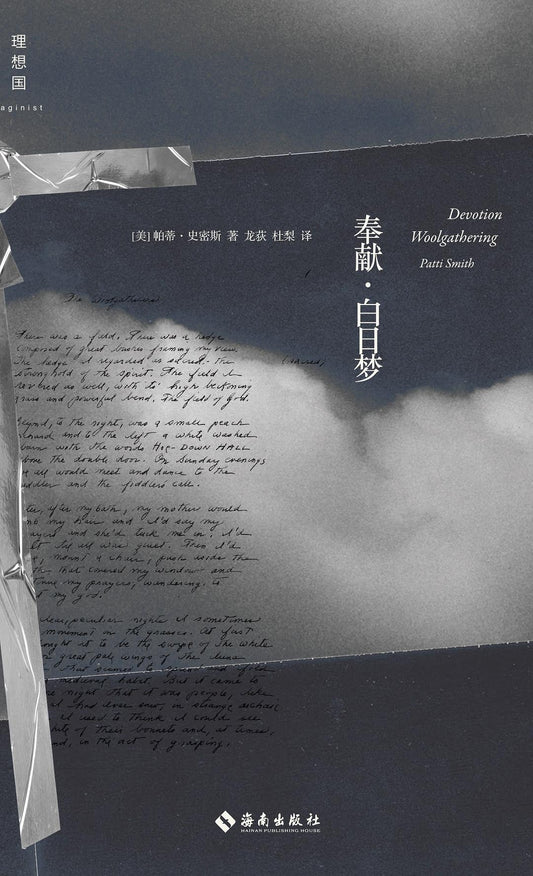 理
想
国
aginist
Devotion
Woolgathering
Patti Smith
奉献·白日梦
[美] 帕蒂·史密斯 著 龙荻 杜梨 译
The Woolgatherers
There was a field. There was a hedge
composed of great bushes framing my view.
The hedge I regarded as sacred. The
(sacred)
stronghold of the spirit. The field I
revered as well, with its high beckoning
grass and powerful bend. The field of God.
Beyond, to the right, was a small peach
orchard and to the left a white washed
barn with the words HOE-DOWN HALL
above the double door. On Sunday evenings
we all would meet and dance to the
fiddler and the fiddlers call.
after my bath, my mother would
my hair and I'd say my
prayers and she'd tuck me in. I'd
til all was quiet. Then I'd
mount a chair, push aside the
that covered my window and
my prayers, wandering, to
my god.
clear, peculiar nights I sometimes
movement in the grasses. At first
thought it to be the swipe of the white
or great pale wings of the luna
that seemed to
medieval habit. But it came to
me night that it was people, like
I had ever seen, in strange archaic
I used to think I could see
white of their bonnets and, at times,
hand, in the act of grasping,
海南出版社
HAINAN PUBLISHING HOUSE